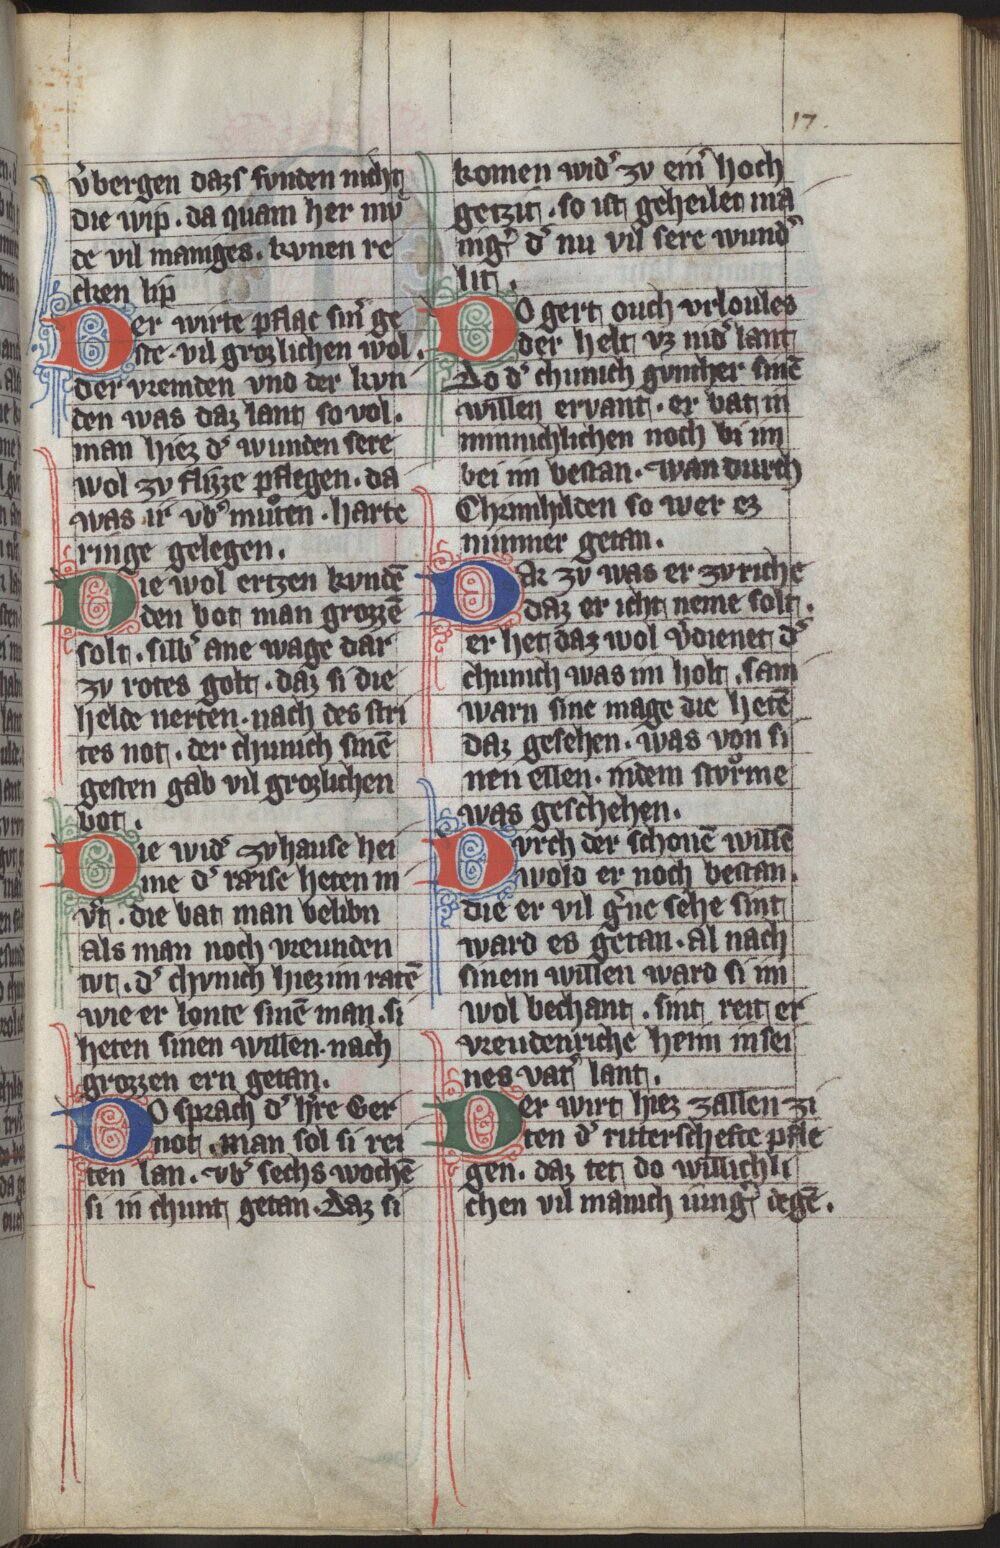 17.
v̓bergen dazs funden nicht
die wip . da quam her mv̊
de vil maniges . kvnen re
cken lip
Der wirte pflac sin̓ ge
ste . vil grozlichen wol .
der vremden vnd der kvn
den was daz lant so vol .
man hiez d̓ wunden sere
wol zv flizze pflegen . da
was ir vb̓muͦten . harte
ringe gelegen .
Die wol ertzen kvndē
den bot man grozzē
solt . silb̓ ane wage dar
zv rotes golt . daz si die
helde nerten . nach des stri
tes not . der chunich sinē
gesten gab vil grozlichen
bot .
Die wid̓ zvhause hei
me d̓ raise heten m
v̓t . die bat man belibn
als man noch vreunden
tvt . d̓ chvnich hiez im ratē
wie er lonte sinē man . si
heten sinen willen . nach
grozzen ern getan .
Do sprach d̓ h̓re Ger
not . man sol si rei
ten lan . vb̓ sechs wochē
si in chunt getan . Daz si
komen wid̓ zv ein̓ hoch
getzit . so ist geheilet ma
nig̓ d̓ nu vil sere wund̓
lit .
Do gert ouch vrloules
der helt vz nid̓ lant
Do d̓ chunich gvnther sinē
willen ervant . er bat in
minnichlichen noch bi im
bei im bestan . wan durch
Chrimhilden so wer ez
nimmer getan .
Dar zv was er zv riche
daz er icht neme solt .
er het daz wol v̓dienet d̓
chunich was im holt . sam
warn sine mage die hetē
daz gesehen . was von si
nen ellen . indem stvͦrme
was geschehen .
Dvrch der schonē willē
wold er noch bestan .
die er vil g̓ne sehe sint
ward es getan . al nach
sinem willen ward si im
wol bechant . sint reit er
vreudenriche heim in sei
nes vat̓ lant .
Der wirt hiez zallen zi
ten d̓ ruterschefte pfle
gen . daz tet do willichli
chen vil manich iung̓ degē .